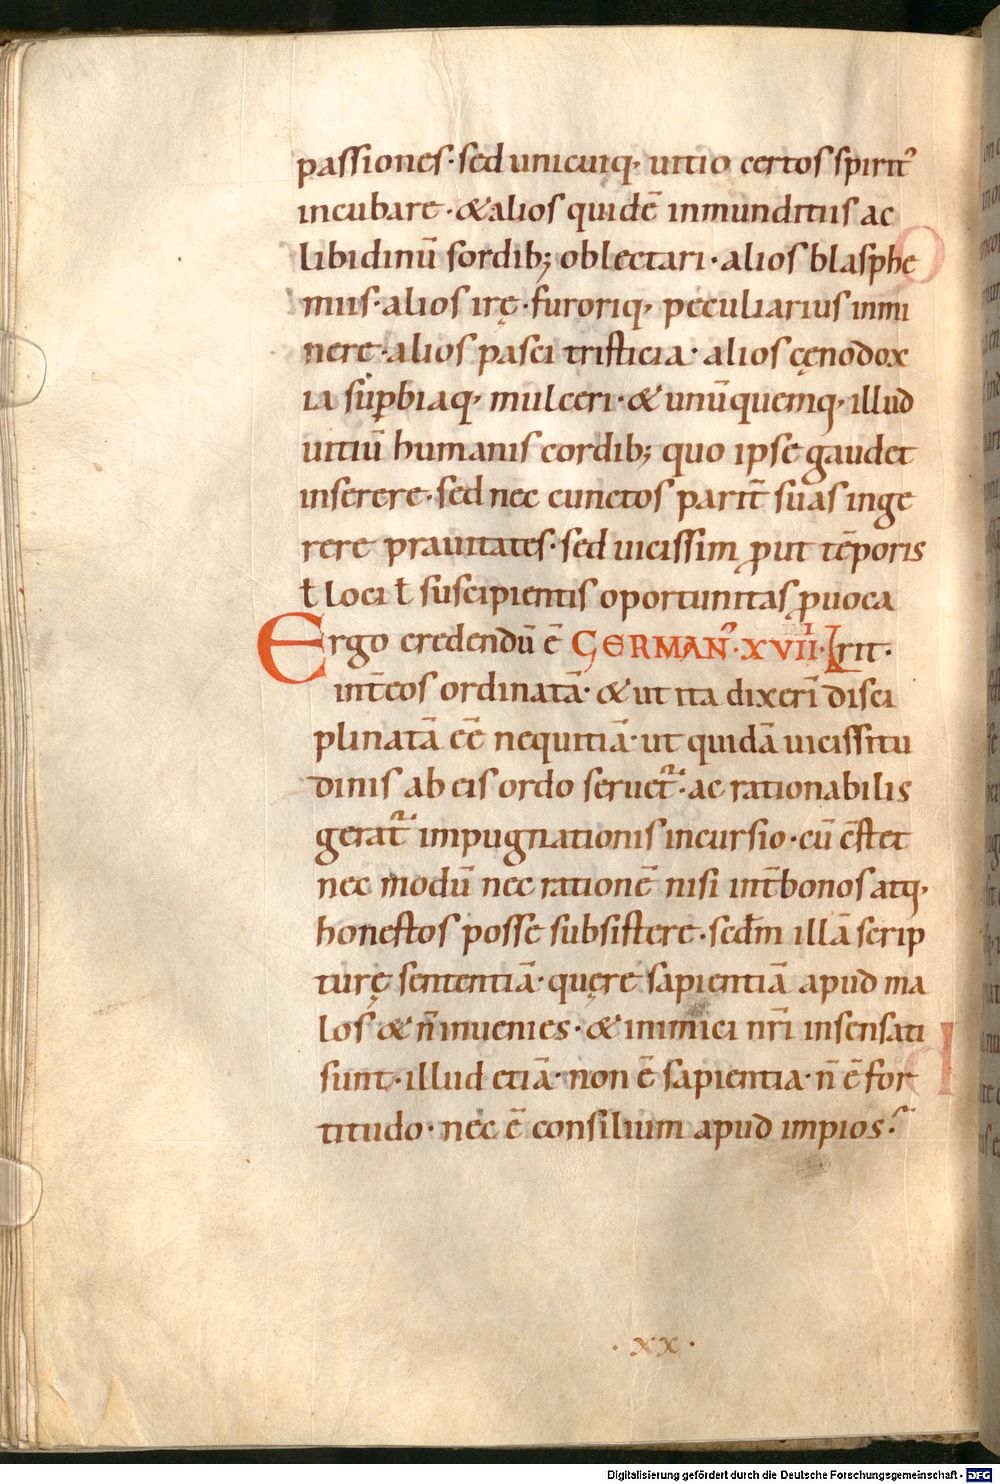 passiones · sed unicuiq, uitio certos spirit᾽
incubare · & alios quidē inmunditiis ac
libidinū sordib; oblectari · alios blasphe
miis · alios irę · furoriq, peculiarius inmi
nere · alios pasci tristicia · alios cęnodox
ia suꝑbiaq, mulceri · & unūquemq, illud
uitiū humanis cordib; quo ipse gaudet
inserere · sed nec cunctos parit̄ suas inge
rere prauitates · sed uicissim ꝓut tēporis
ƚ loci ƚ suscipientis oportunitas ꝓuoca
Ergo credendū ē GERMAN᾽ · XVIII · rit ·
int̄ eos ordinatā · & ut ita dixeri᷄ disci
plinatā eē̄ nequitiā · ut quidā uicissitu
dinis ab eis ordo seruet᷑ · ac rationabilis
gerat᷑ impugnationis incursio · cū c̄stet
nec modū nec rationē nisi int̄ bonos atq,
honestos posse subsistere · sedm̄ illā scrip
turę sententiā · quęre sapientiā apud ma
los & n̄ inuenies · & inimici nr̄i insensati
sunt · illud etiā · non ē sapientia · n̄ ē for
titudo · nec ē consilium apud impios ·
· xx ·
Digitalisierung gefördert durch die Deutsche Forschungsgemeinschaft - DFG